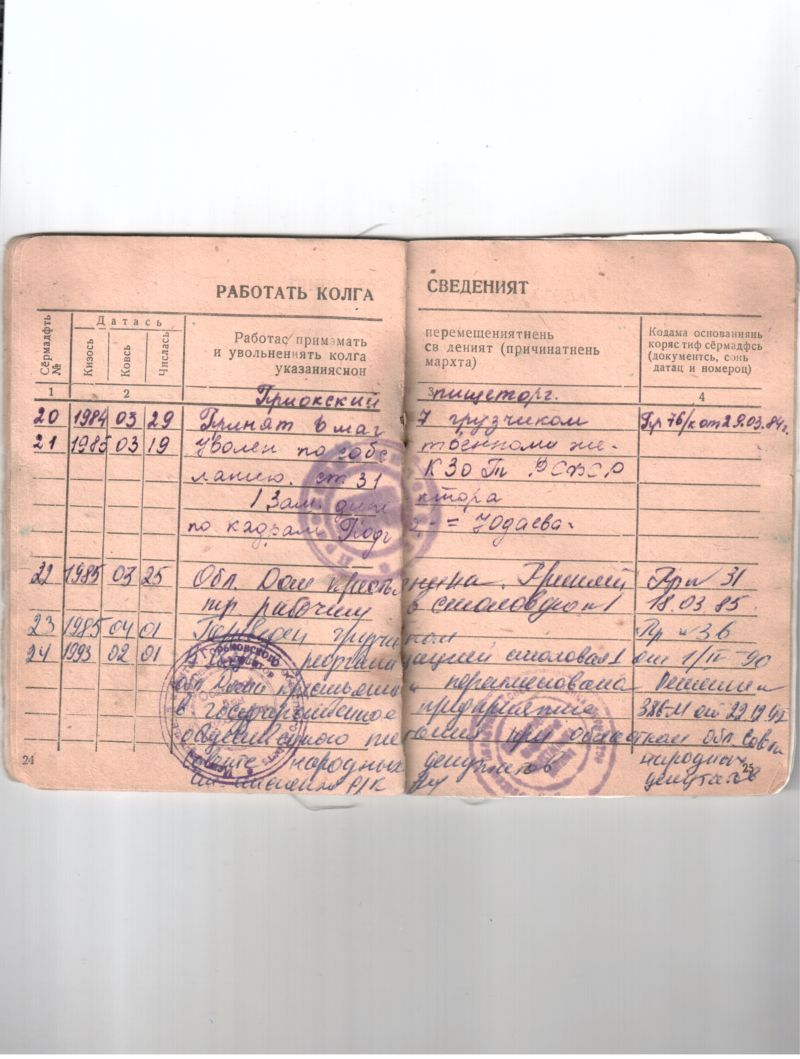 РАБОТАТЬ КОЛГА СВЕДЕНИЯТ
Сёрмадфть №
Датась
Кизось
Ковсь
Числась
Работас примамать и увольненять колга указаниясион
перемещениятнень св деният (причинатнень мархта)
Кодама основаниянь коряс тиф сёрмадфсь (документсь, сонь датац и номероц)
1 2 3 4
Приокский пищеторг.
20 1984 03 29 Принят в маг 7 грузчиком Пр 76/к от 29.03.84г.
21 1985 03 19 Уволен по собственному же-
ланию. ст 31 КЗоТ РСФСР
Зам. директора
по кадрам Юдаева
22 1985 03 25 Обл. Дом крестьянина. Принят Пр № 31
рабочим в столовую №1 18.03.85.
23 1985 04 01 Переведен грузчиком Пр № 36
24 1993 02 01 реорганизацией столовая 1 от 1/IV 90
обл. Дома крестьянина переименована Решение
в государственное предприятие 386-М от 22.12.92
общественного питания при областном обл. Сов
совете народных депутатов народных
депутатов
24
25